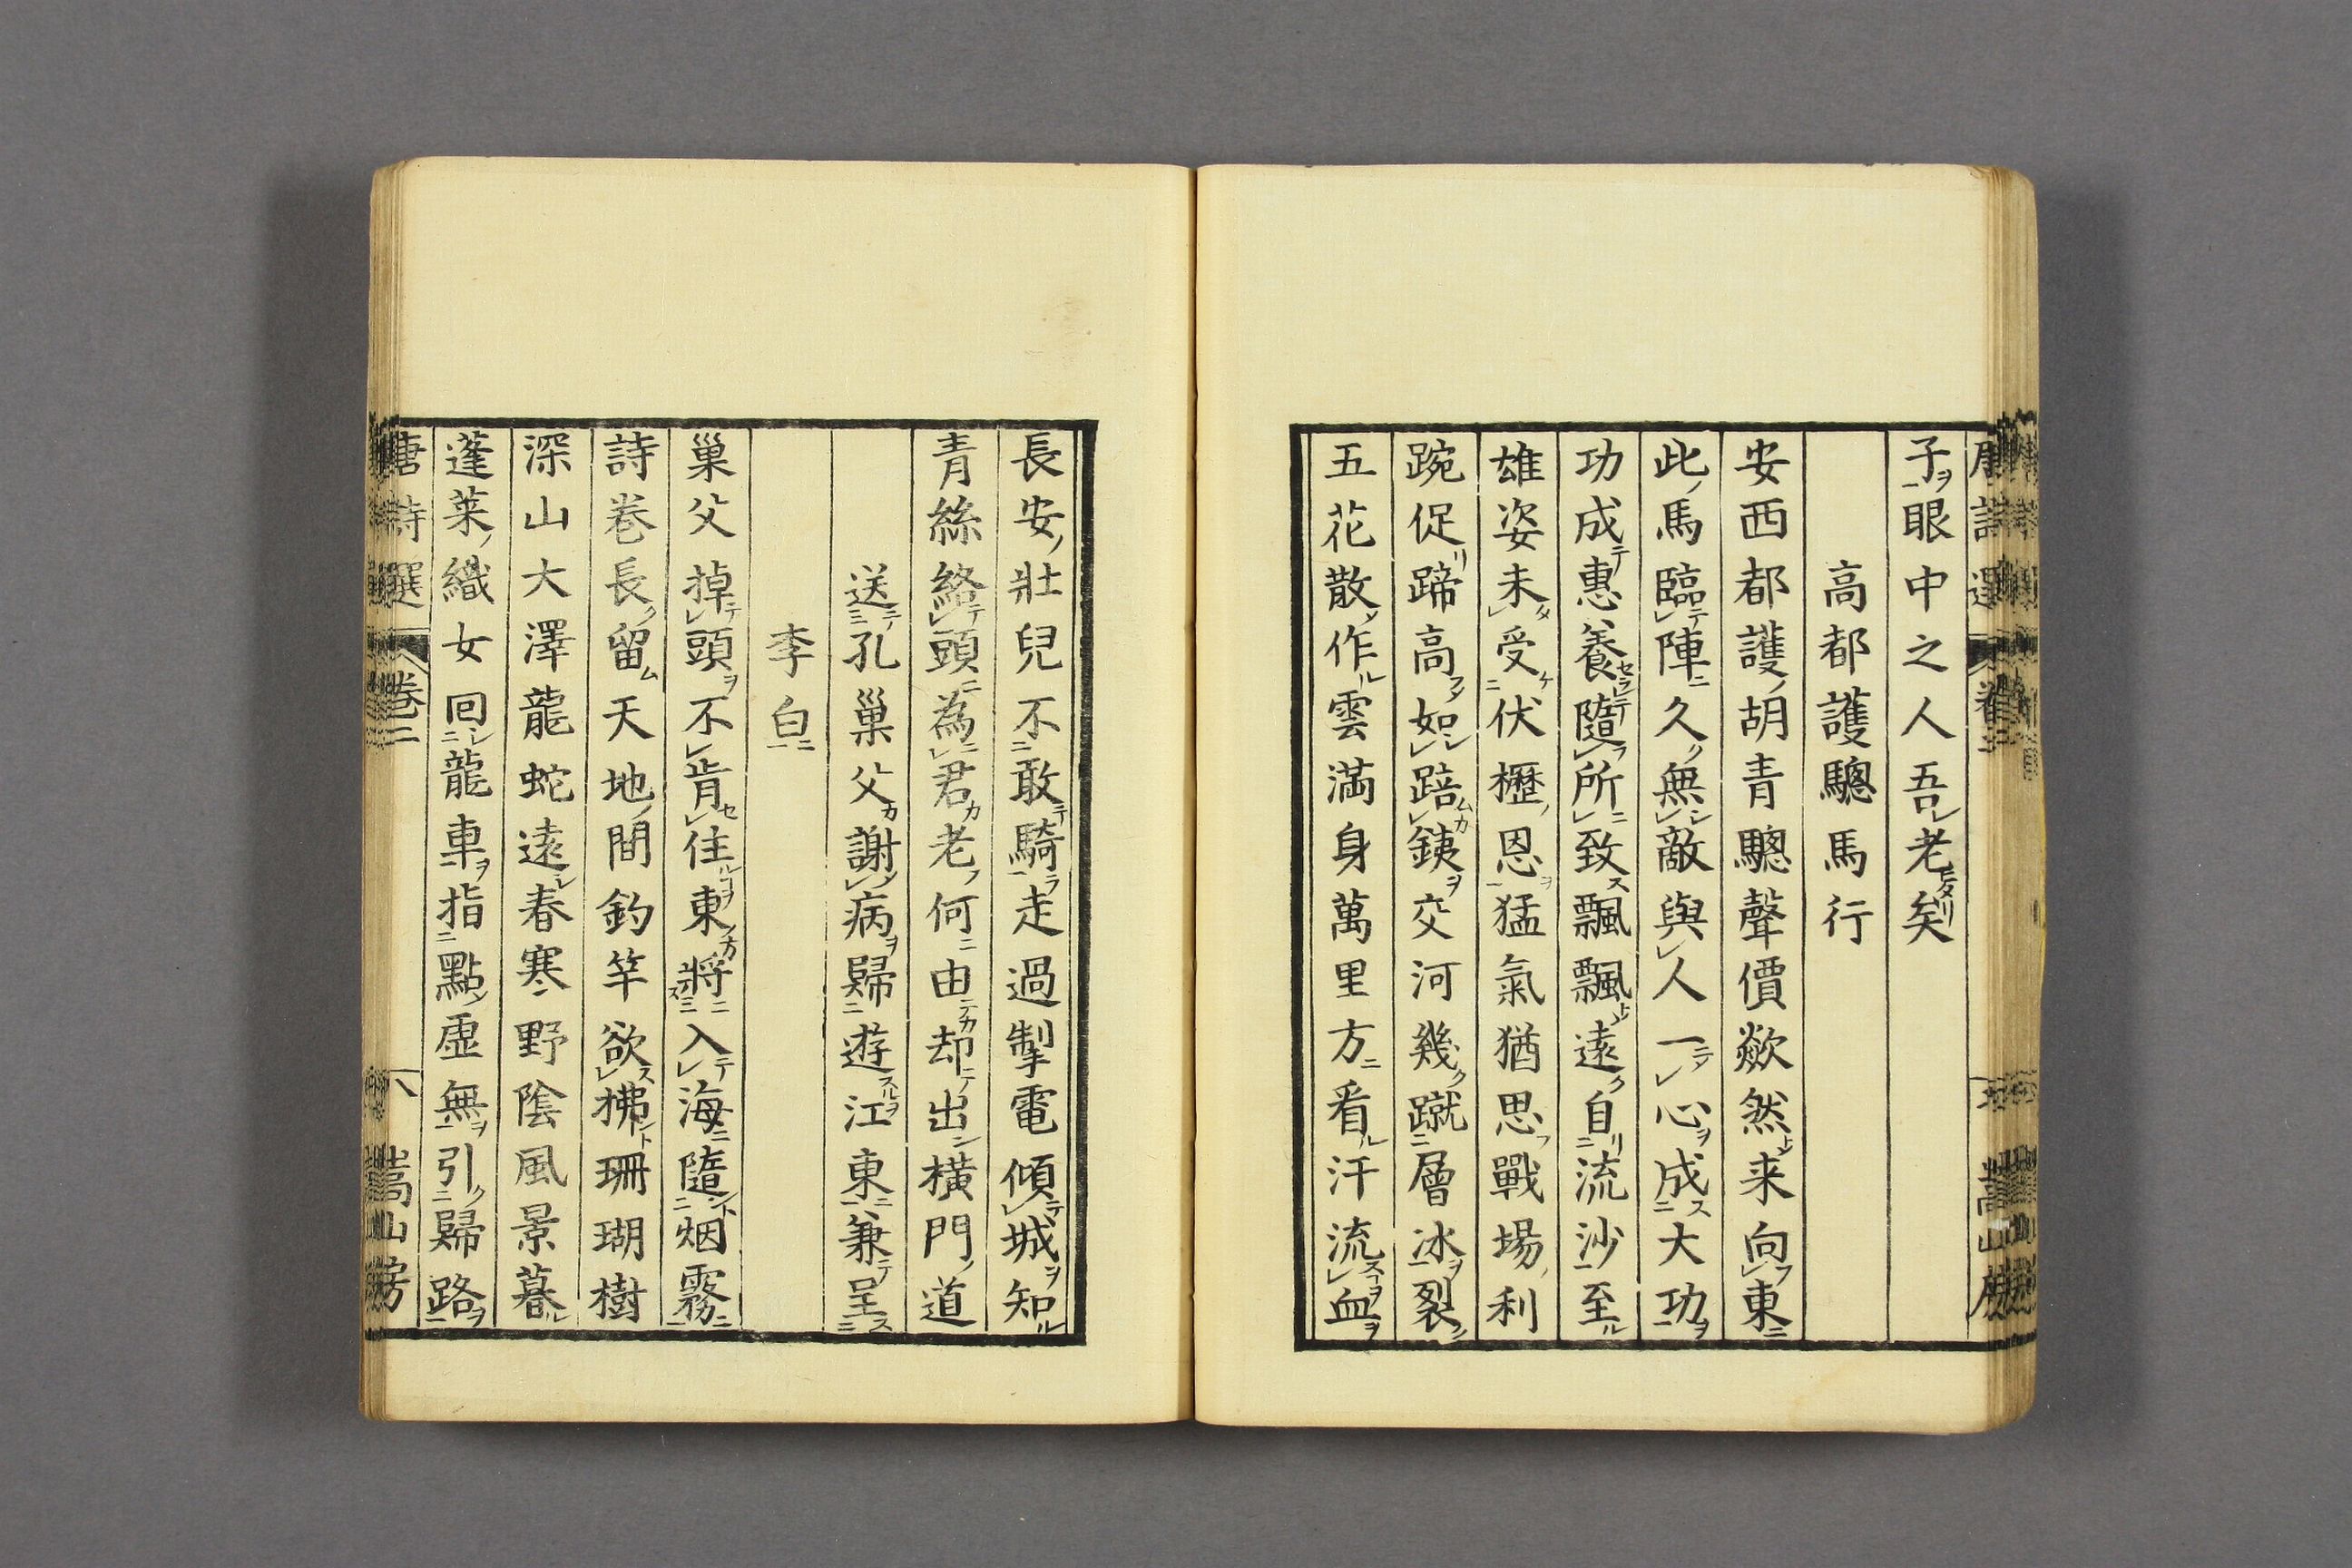 子眼中之人吾老矣
高都護驄馬行
安西都護胡青驄聲價歘然来向東
此馬臨陣久無敵與人一心成大功
功成惠養隨所致飄飄遠自流沙至
雄姿未受伏櫪恩猛氣猶思戰場利
踠促蹄高如踣鐵交河幾蹴層冰裂
五花散作雲滿身萬里方看汗流血
長安壯兒不敢騎走過掣電傾城知
青絲絡頭為君老何由却出橫門道
送孔巢父謝病歸遊江東兼呈
李白
巢父掉頭不肯住東將入海隨烟霧
詩卷長留天地間釣竿欲拂珊瑚樹
深山大澤龍蛇遠春寒野陰風景暮
蓬萊織女回龍車指點虛無引歸路
唐詩選 卷二 八 嵩山房